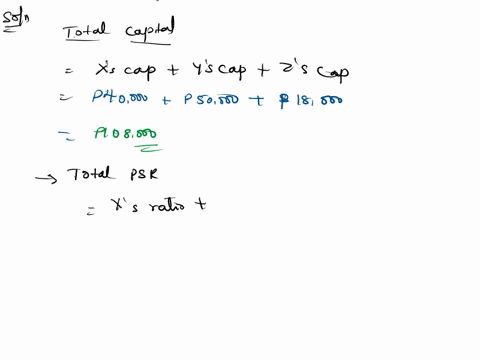 Soln
Total Capital
= X's cap + Y's cap + Z's cap
= P40,000 + P50,000 + P18,000
= P108,000
→ Total PSR
= X's ratio +